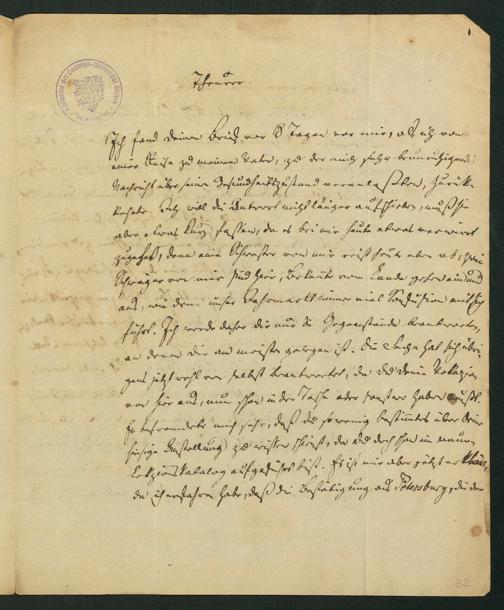 Theurer.
Ich fand deinen Brief vor 8 Tagen vor mir, als ich von
einer Reise zu meinem Vater, zu der mich sehr beunruhigende
Nachricht über seinen Gesundheitszustand veranlaßten, zurück-
kehrte. Jetzt will die Antwort nicht länger aufschieben, muß sie
aber etwas kurz fassen, da es bei mir heute etwas verwirrt
zugeht, denn eine Schwester von mir reist heute eben ab, zwei
Schwäger von mir sind hier, Bekannte vom Lande gehen ein und
aus, wie denn unser Jahrmarkt immer viel Confusion mit sich
führt. Ich werde daher dir nur die Gegenstände beantworten,
an denen dir am meisten gelegen ist. Die Sache hat sich übri-
gens jetzt wohl von selbst beantwortet, da du deine Vokazion
von hier aus, nun schon in der Tasche oder sonstwo haben mußt.
Es befremdete mich sehr, daß du so wenig bestimmtes über deine
hiesige Anstellung zu wissen scheinst, da du doch schon im neuen
Lektionskatalog aufgeführt bist. Es ist mir aber jetzt erklärt,
da ich erfahren habe, daß die Bestätigung aus Petersburg, die der
32